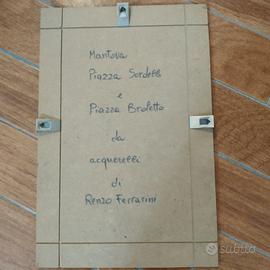 Mantova
Piazza Sordello
e
Piazza Broletto
da
acquerelli
di
Renzo Ferrarini
subito